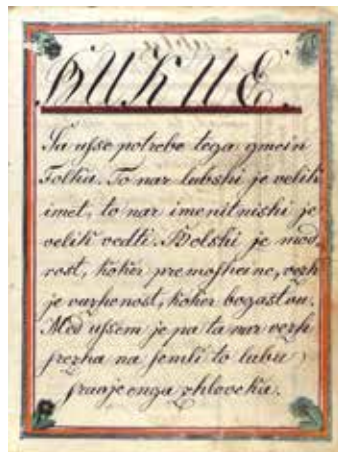 BUKUE.
Sa usse potrebe tega gmein
Folka. To nar lubshi je velik
imet, to nar imenitnishi je
velik vedti. Bolshi je mod
rost, koker premoshene, vezh
je vuzhenost, koker bogastvu.
Med ussem je pa ta nar vezh
srezha na semli to lubu
zhloveka.